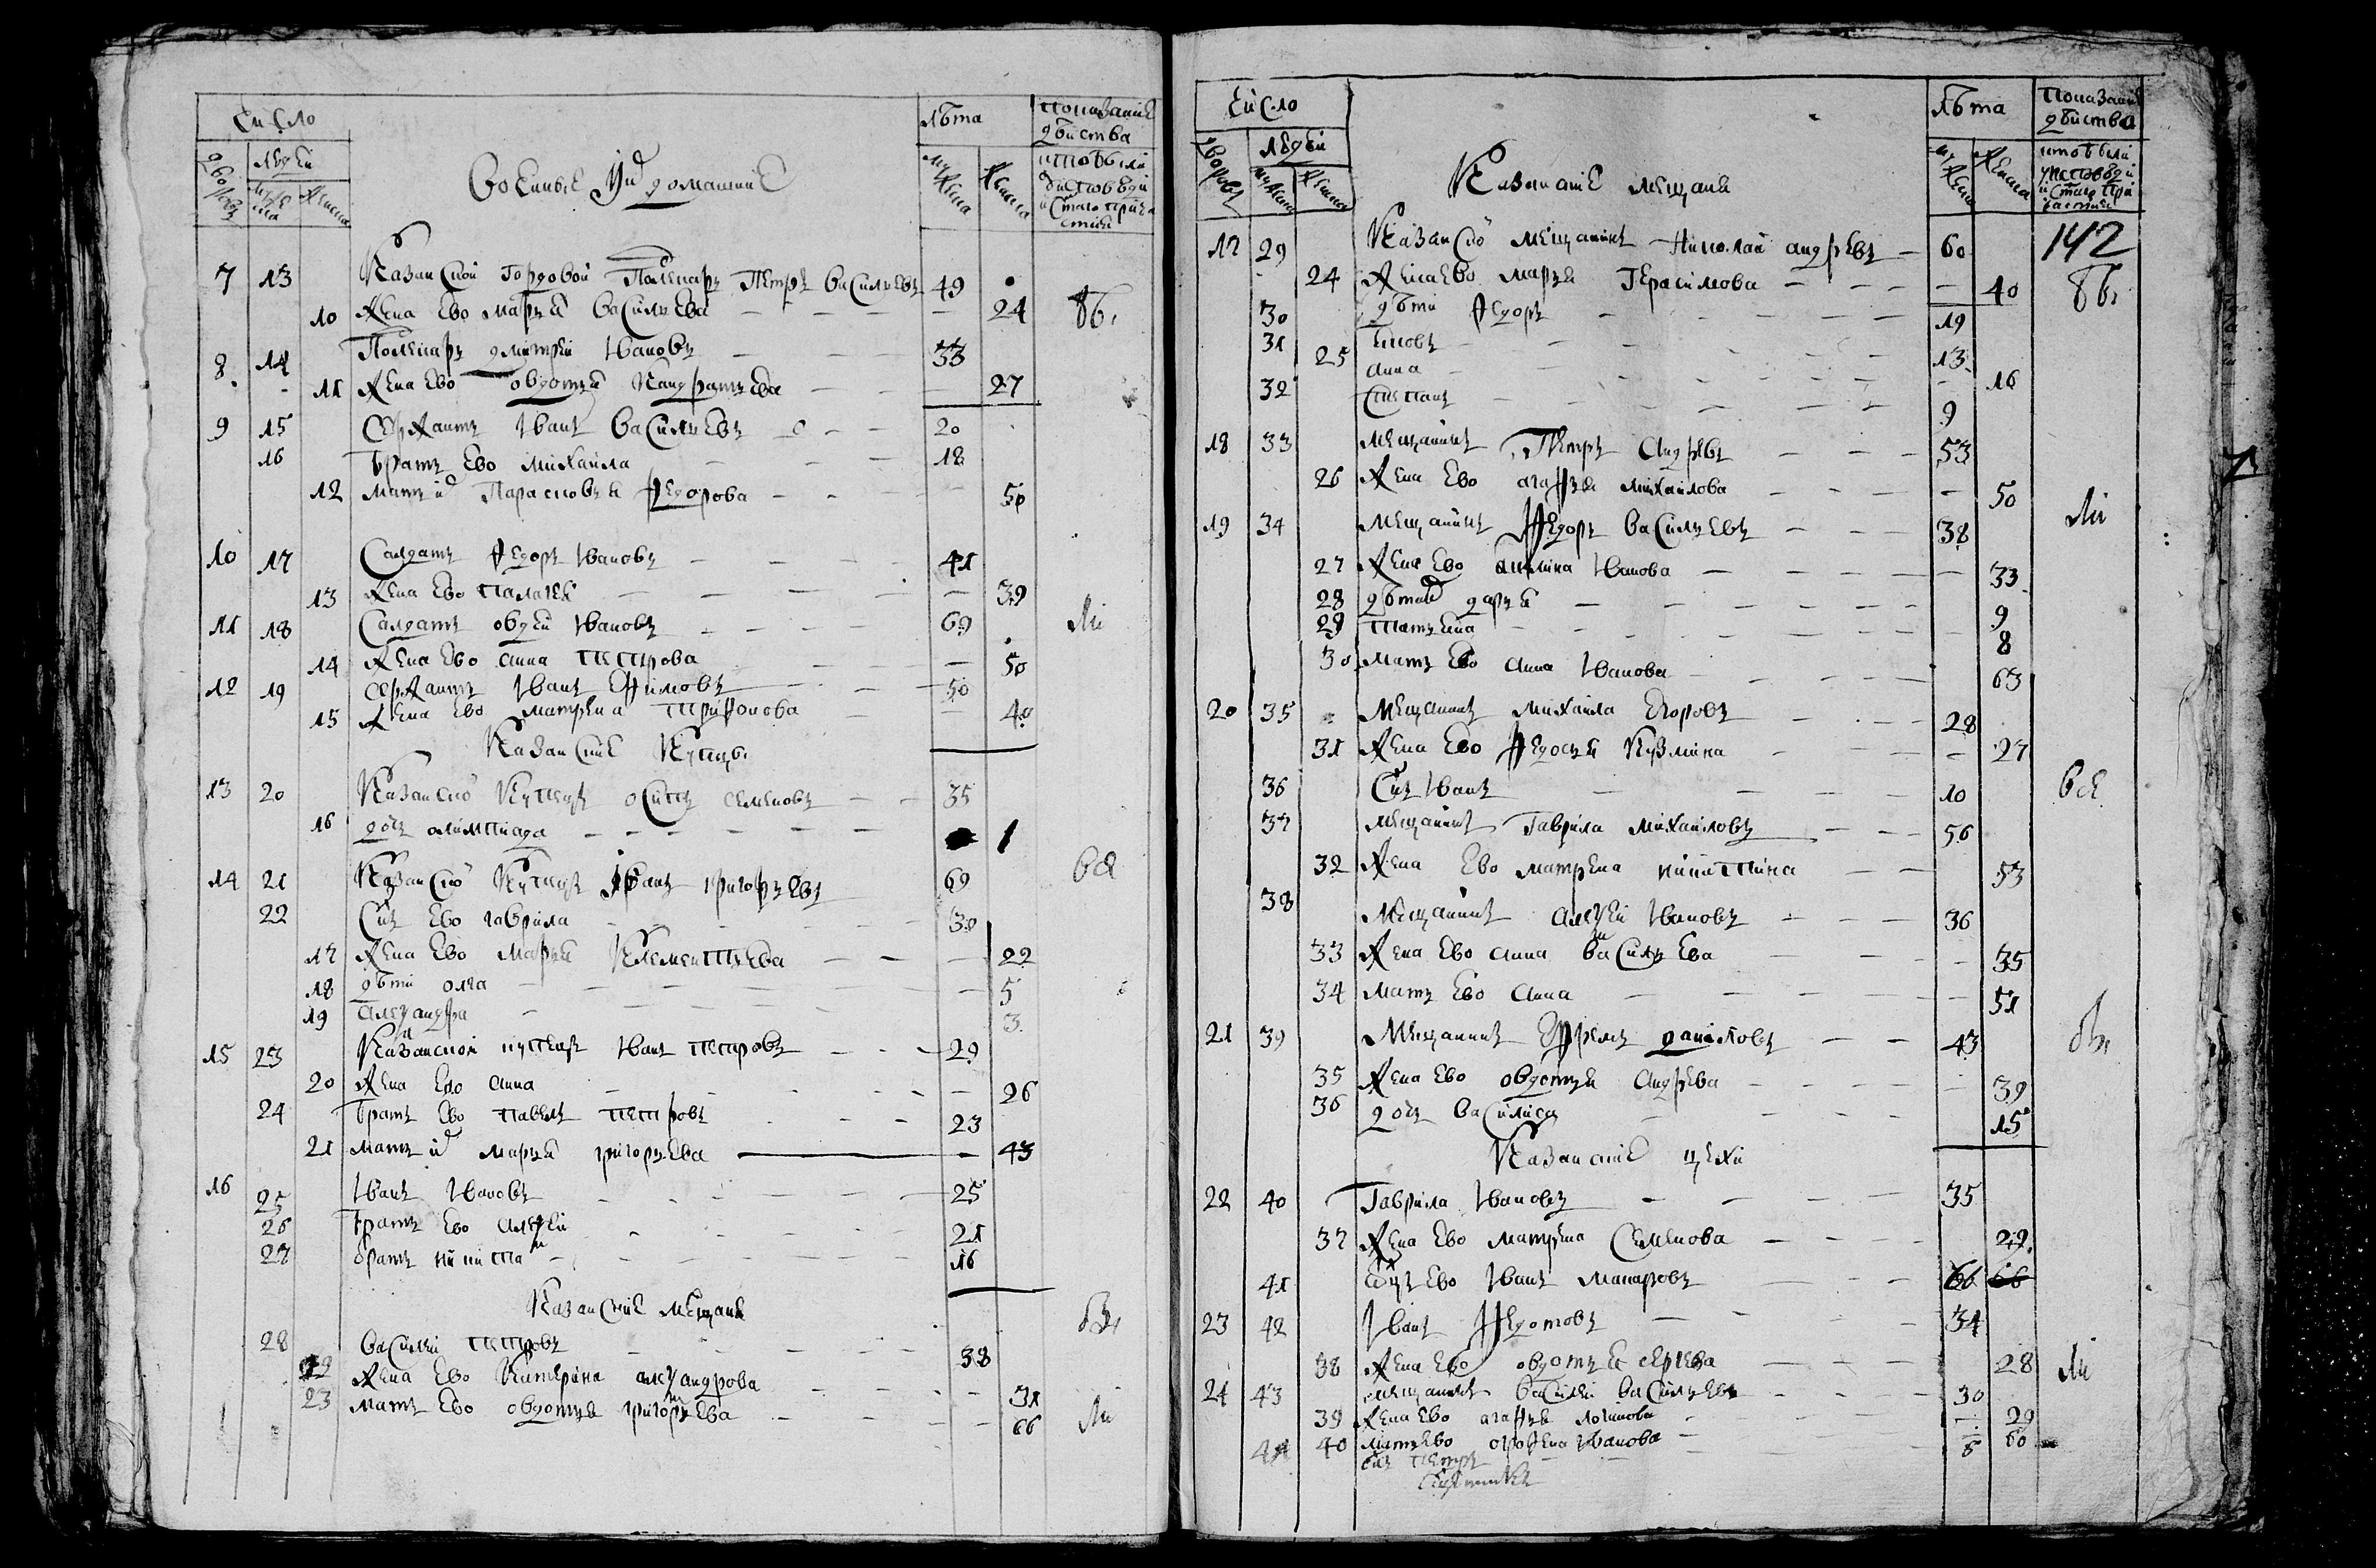 Число
Лѣта
Показаніе дѣйства
дворовъ
людей
мужеска
женска
мужеска
женска
кто были
у исповѣди
и святаго прича
стия
Военные и их домашние
7 13 Казанской городовой Петръ Васильевъ 49
10 Жена ево Марья Васильева — 24
8 14 Дмитрей Ивановъ 33
11 Жена ево Овдотья Кандратьева — 27
9 15 Сержантъ Иванъ Васильевъ 20
16 Братъ ево Михайла 18
12 Мать их Парасковья Федорова — 50
10 17 Салдатъ Федоръ Ивановъ 41
13 Жена ево Палагея — 39
11 18 Салдатъ Ивановъ 69
14 Жена ево Анна Петрова — 50
12 19 Сержантъ Иванъ Ефимовъ 50
15 Жена ево Матрена Трифонова — 40
Казанские купцы
13 20 Казанской купецъ Осипъ Семеновъ 35
16 дочь Олимпиада 1
14 21 Казанской купецъ Иванъ Григорьевъ 69
22 Сын ево Гаврила 30
17 Жена ево Марья Клементьева — 22
18 дѣти Олга — 5
19 Александра 3
15 23 Казанской купецъ Иванъ Петровъ 29
20 Жена ево Анна — 26
24 Братъ ево Павелъ Петровъ 23
21 Мать их Марья Григорьева — 43
16 25 Иванъ Ивановъ 25
26 Братъ ево Алексей 21
27 братъ Никита 16
Казанские мещане
28 Василей Петровъ 38
22 Жена ево Катерина Александрова 31
23 Мать ево Овдотья Григорьева — 66
Число
Лѣта
Показаніе
дѣйства
дворовъ
людей
мужеска
женска
женска
кто были
у исповѣди
и святаго при
частия
Казанские мещане
142
17 29 Казанской мещанинъ Николай Андревъ 60
24 Жена ево Марья Герасимова — 40
30 дѣти Федоръ 19
31 13
25 Анна — 16
32 Степанъ 9
18 33 Мещанинъ Петръ Андревъ 53
26 Жена ево Агафья Михайлова — 50
19 34 Мещанинъ Федоръ Васильевъ 38
27 Жена ево Ивanова — 33
28 дѣти Дарья 9
29 Татьяна — 8
30 Мать ево Анна Иванова 63
20 35 Мещанинъ Михайла Егоровъ 28
31 Жена ево Федосья Кузмина — 27
36 Сынъ Иванъ 10
37 Мещанинъ Гаврила Михайловъ 56
32 Жена ево Матрена Никитина 53
38 Мещанинъ Алексей Ивановъ 36
33 Жена ево Анна Васильева — 35
34 Мать ево Анна — 51
21 39 Мещанинъ Ефремъ Даниловъ 43
35 Жена ево Овдотья Андрева — 39
36 дочь Василиса 15
Казанские цехи
22 40 Гаврила Ивановъ 35
37 Жена ево Матрена Семенова 29
41 Отецъ ево Иванъ Макаровъ 66
23 42 Иванъ Федотовъ 34
38 Жена ево Овдотья Сергева 28
24 43 мещанинъ Василей Васильевъ 30
39 Жена ево Агафья Логинова — 29
40 Мать ево Иванова — 60
44 сынъ Петръ 8